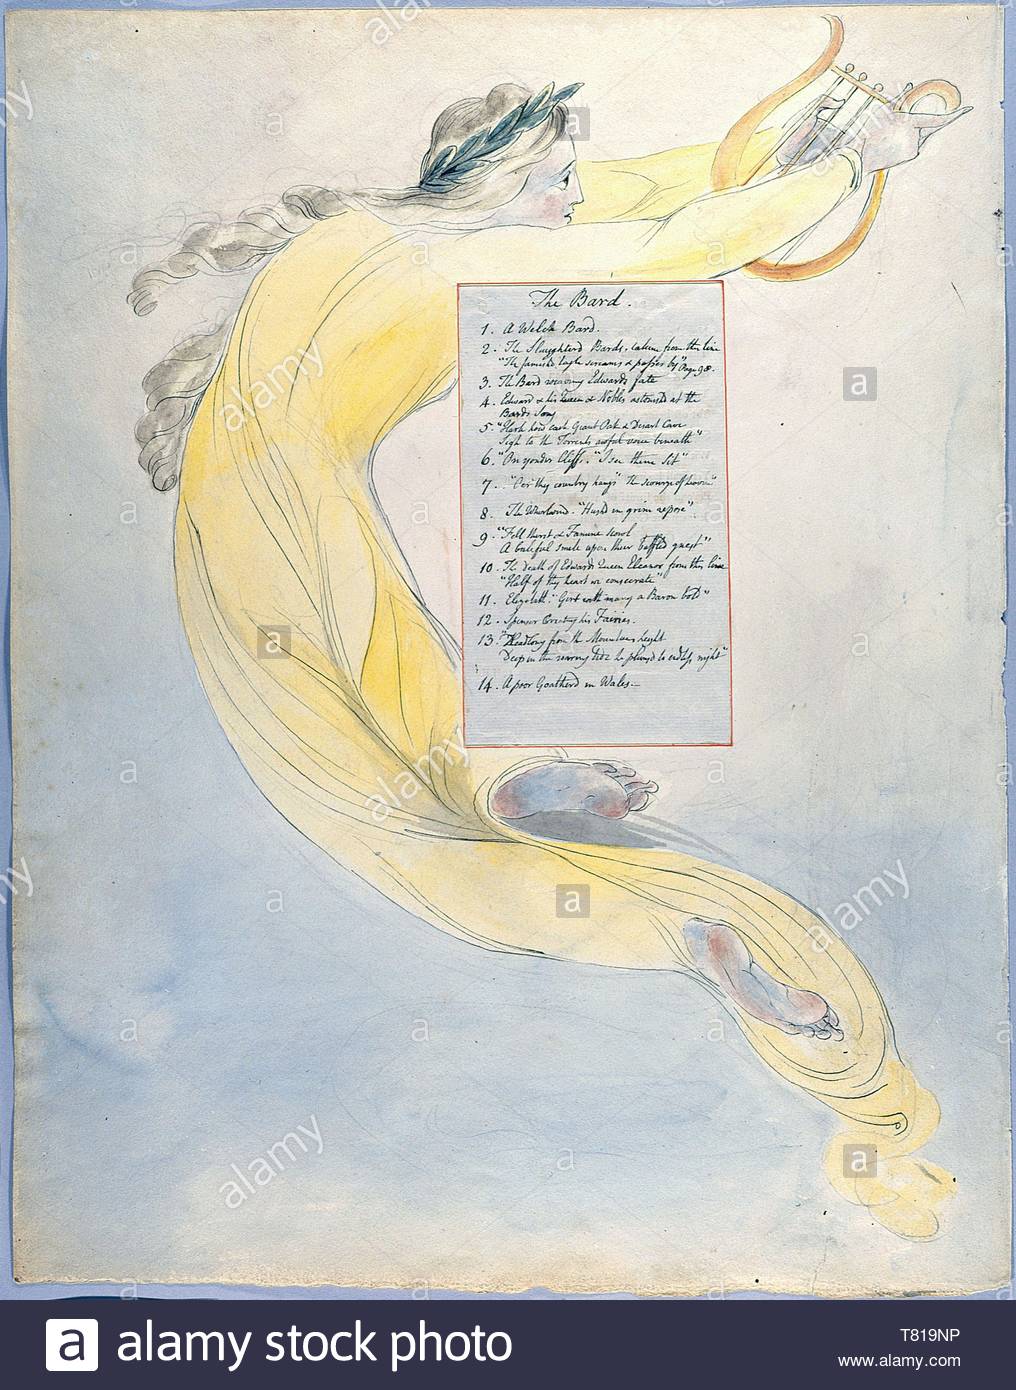 The Bard.
1. A Welch Bard.
2. The Slaughterd Bards, taken from the line
"The famishd Eagle screams & passes by" Page 98.
3. The Bard weaving Edwards fate
4. Edward & his Queen & Nobles astonishd at the
Bards Song
5. "Hark how each Giant Oak & Desart Cave
Sigh to the Torrents awful voice beneath"
6. "On yonder Cliffs "I see them Sit"
7. "Oer thy country hangs The scourge of heaven"
8. The Whirlwind. "Hushd in grim repose"
9. "Fell thirst & Famine scowl
A baleful smile upon their baffled guest"
10. The death of Edwards Queen Eleanor from this line
"Half of thy heart we consecrate"
11. Elizabeth "Girt with many a Baron bold"
12. Spenser Creating his Fairies.
13. "Headlong from the Mountains height
Deep in the roaring tide he plungd to endless night"
14. A poor Goatherd in Wales.—
alamy
a
alamy stock photo
T819NP
www.alamy.com